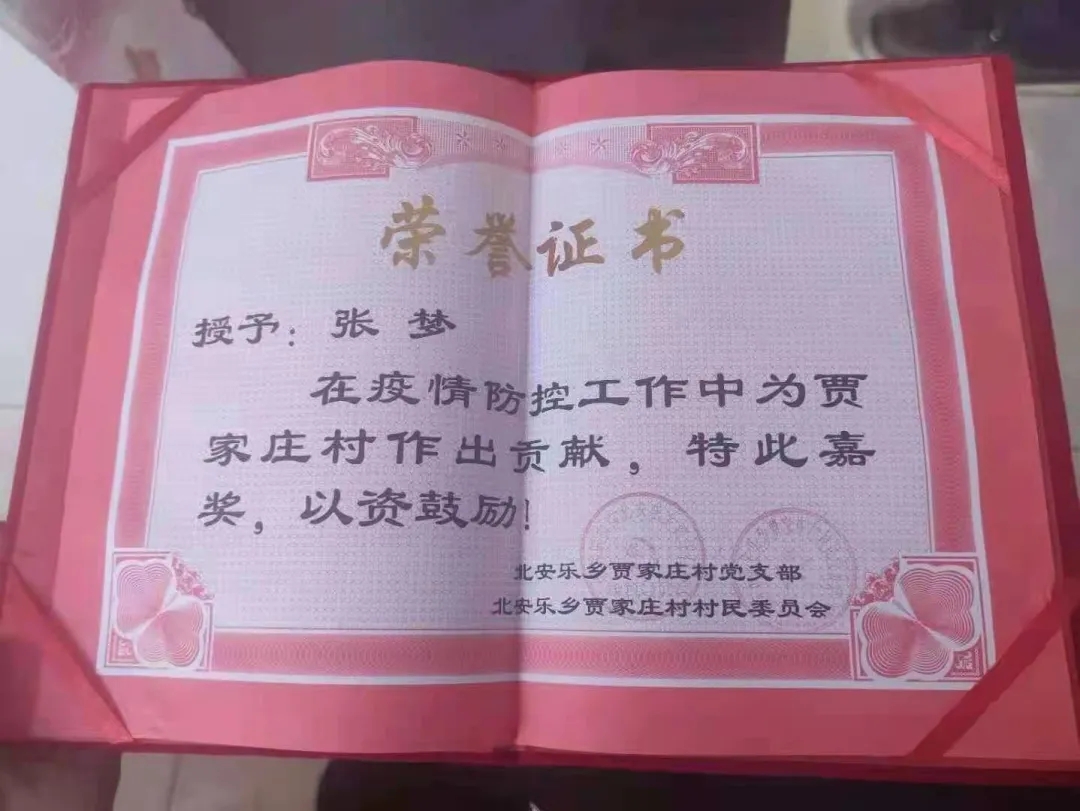 荣誉证书
授予：张 梦
在疫情防控工作中为贾
家庄村作出贡献，特此嘉
奖，以资鼓励！
北安乐乡贾家庄村党支部
北安乐乡贾家庄村村民委员会